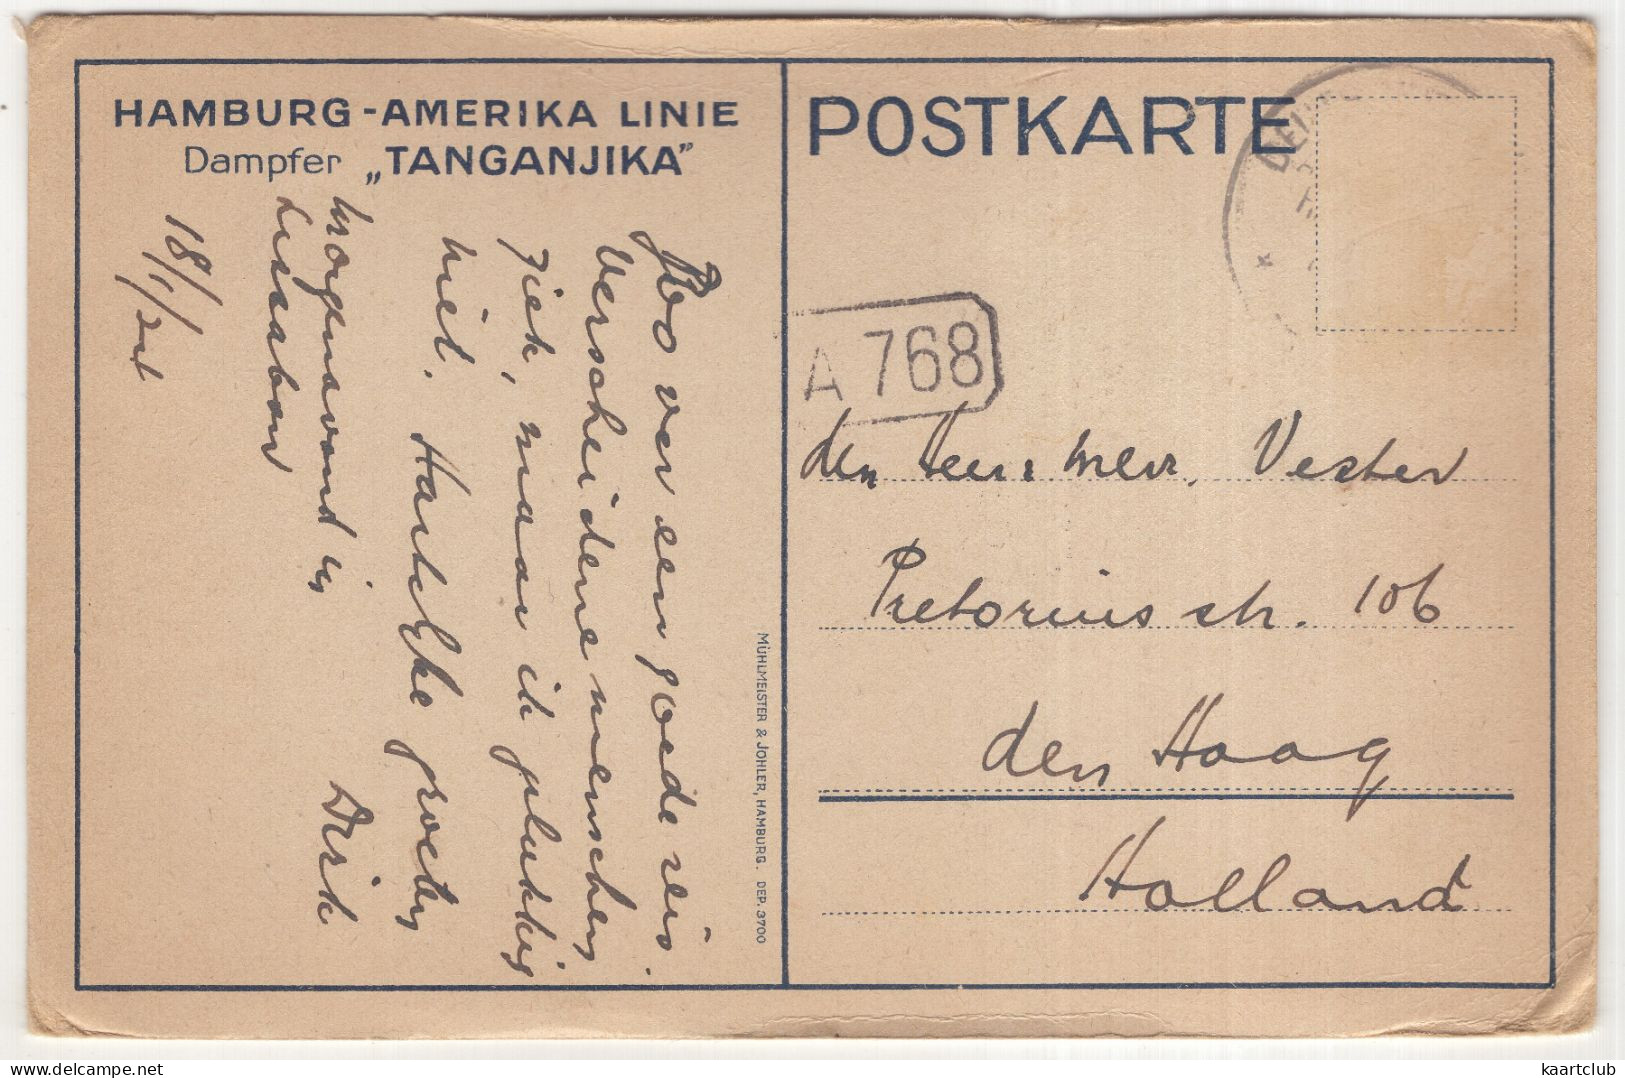 HAMBURG-AMERIKA LINIE
Dampfer „TANGANJIKA"
Zoo ver een goede reis.
Verscheidene menschen
ziek, maar ik gelukkig
niet. Hartelijke groeten
Dirk
morgenavond in
Lissabon
18/1/
POSTKARTE
A 768
den Heer & Mevr. Vester
Pretoriusstr. 106
den Haag
Holland
MÜHLMEISTER & JOHLER, HAMBURG. DEP. 3700
kaartclub